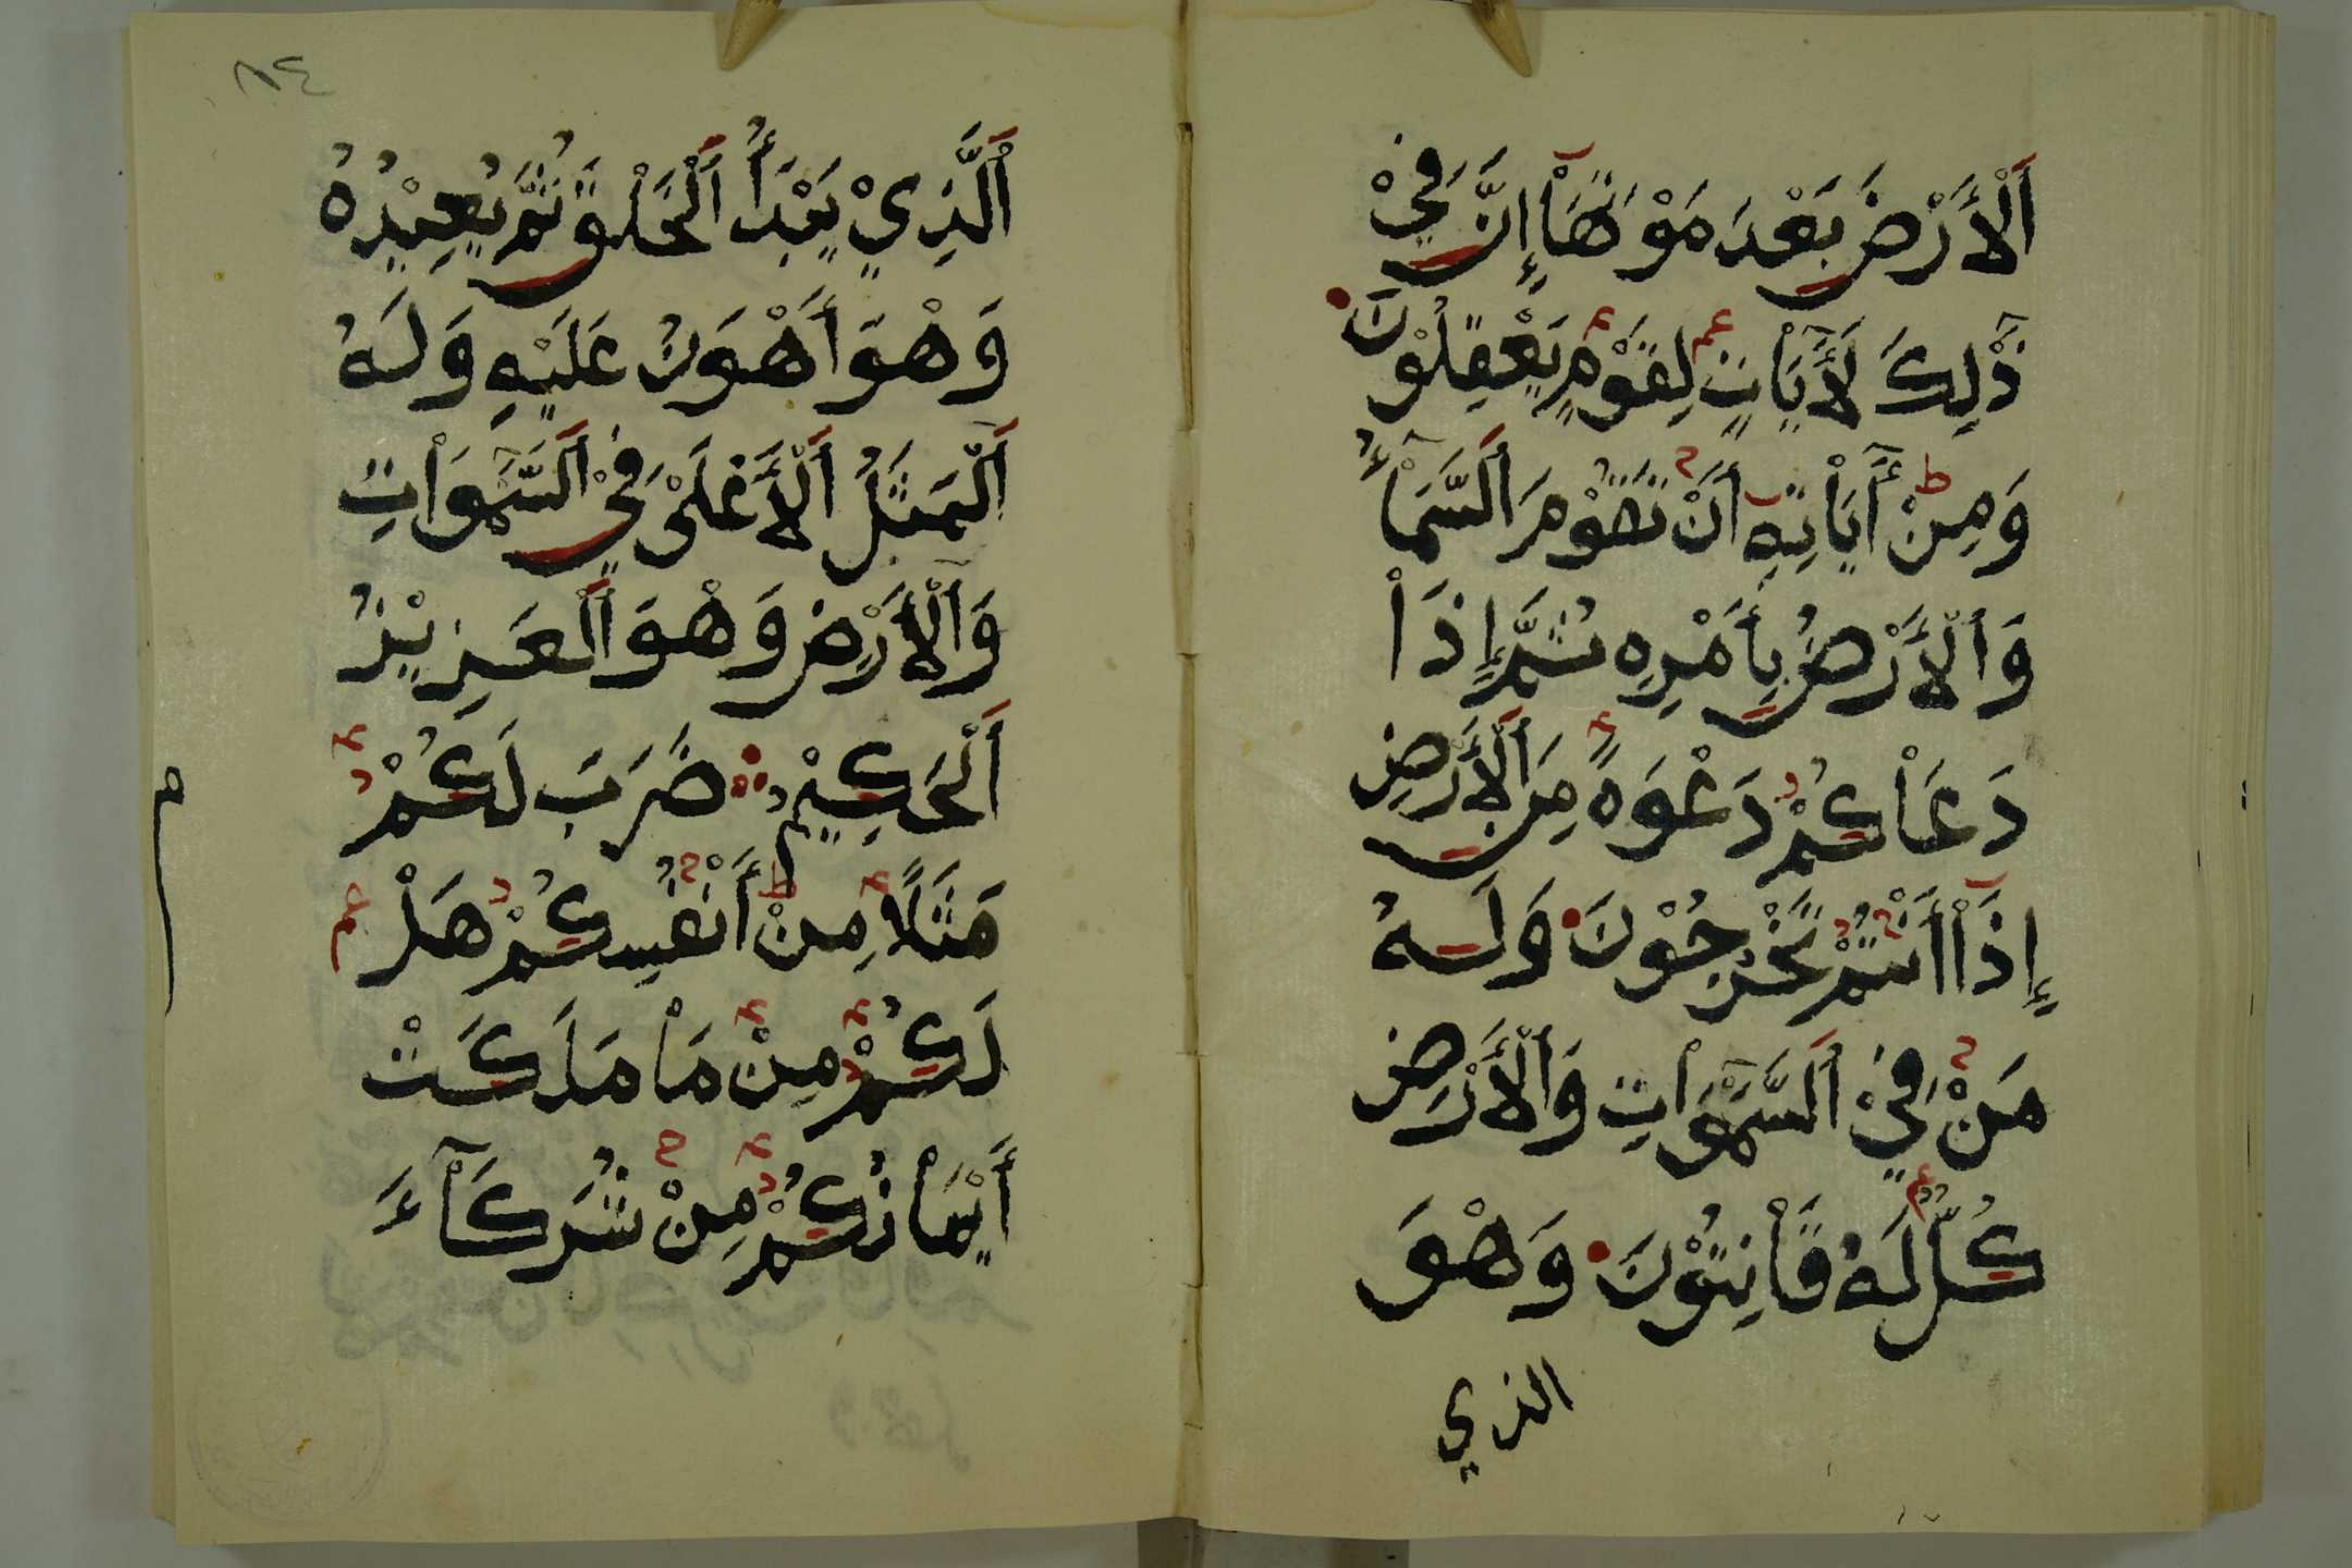 اَلْأَرْضَ بَعْدَ مَوْتِهَاْ إِنَّ فِيْ
ذَٰلِكَ لَأَيَاتٍ لِقَوْمٍ يَعْقِلُوْنَ
وَمِنْ أَيَاْتِهِ أَنْ تَقُوْمَ اَلسَّمَاْءُ
وَاَلْأَرْضُ بِأَمْرِهِ ثُمَّ إِذَاْ
دَعَاْكُمْ دَعْوَةً مِنَ اَلْأَرْضِ
إِذَاْ أَنْتُمْ تَخْرُجُوْنَ وَلَهُ
مَنْ فِيْ اَلسَّمٰوَاْتِ وَاَلْأَرْضِ
كُلٌّ لَهُ قَاْنِتُوْنَ وَهْوَ
الذي
٨٤
اَلَّذِيْ يَبْدَأُ اَلْخَلْقَ ثُمَّ يُعِيْدُهُ
وَهْوَ أَهْوَنُ عَلَيْهِ وَلَهُ
اَلْمَثَلُ اَلْأَعْلَىْ فِيْ اَلسَّمٰوَاْتِ
وَاَلْأَرْضِ وَهْوَ اَلْعَزِيْزُ
اَلْحَكِيْمُ ضَرَبَ لَكُمْ
مَثَلًا مِنْ أَنْفُسِكُمْ هَلْ
لَكُمْ مِنْ مَاْ مَلَكَتْ
أَيْمَاْنُكُمْ مِنْ شُرَكَاْءَ